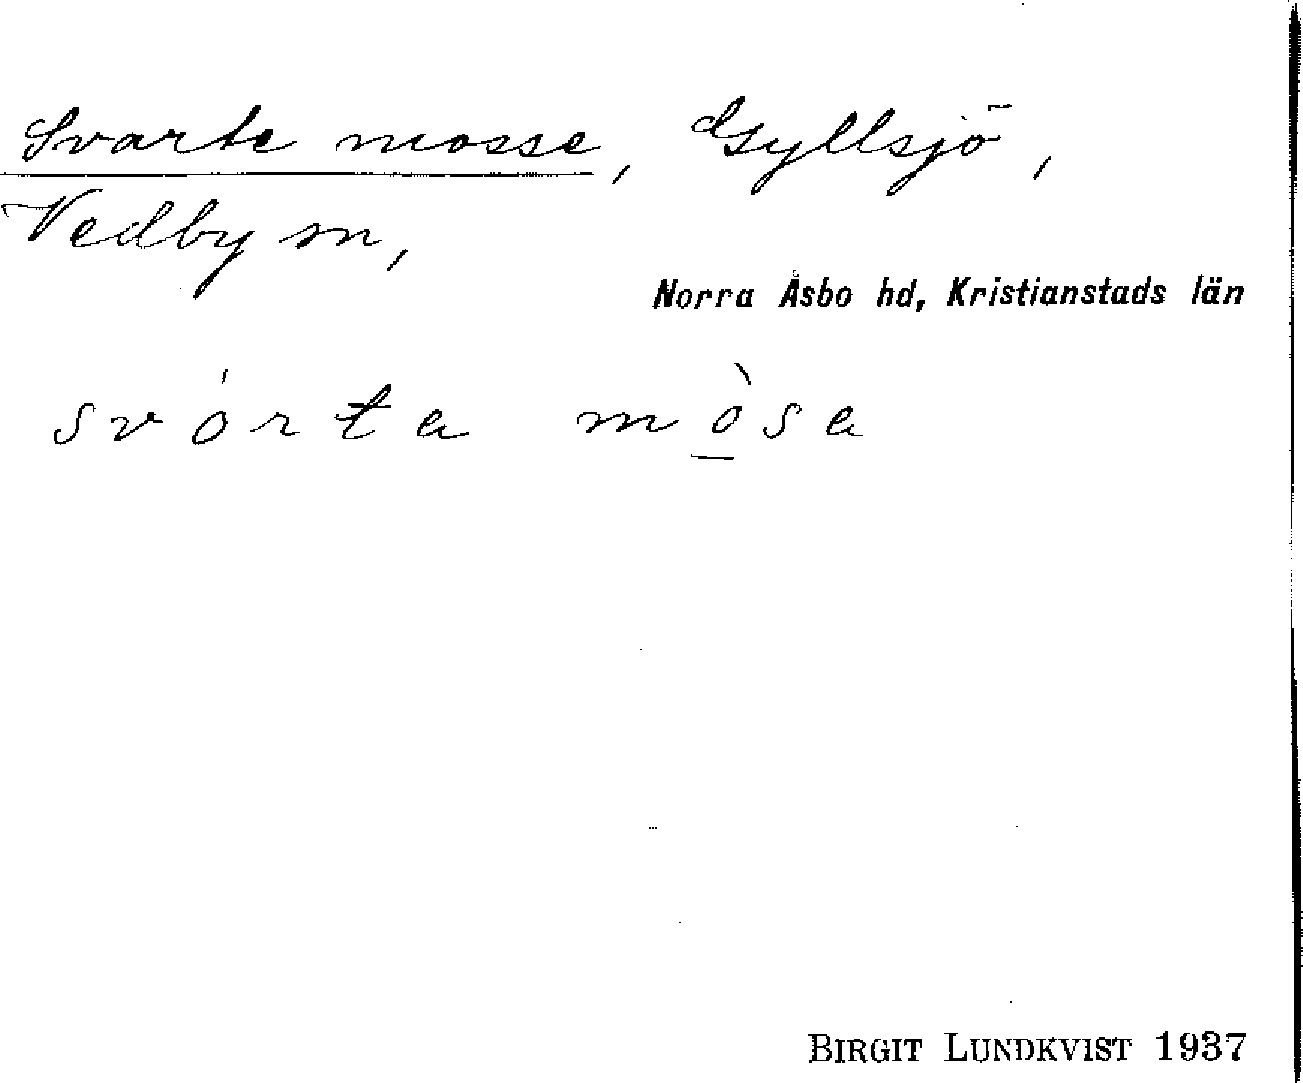 Svarte mosse, Gyllsjö,
Vedby sn,
Norra Åsbo hd, Kristianstads län
svórta mòsa
BIRGIT LUNDKVIST 1937